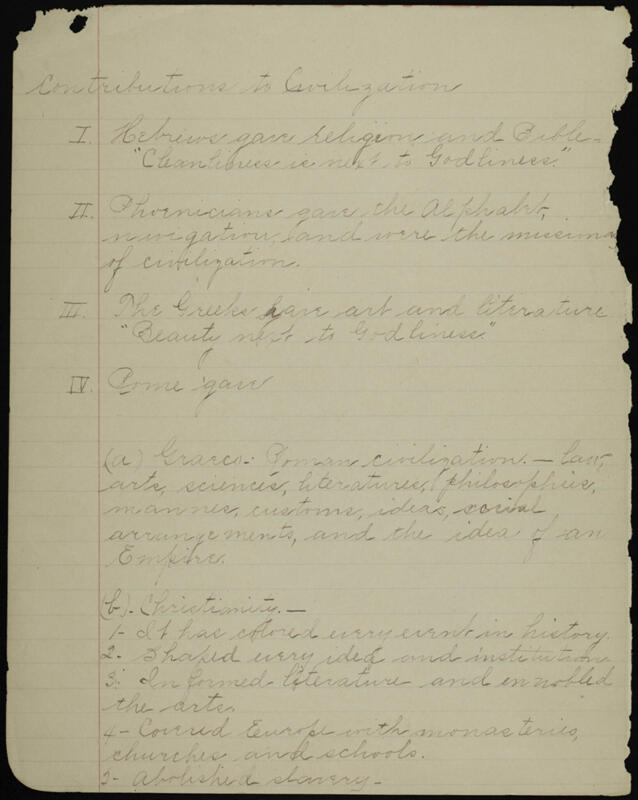 Contributions to Civilization
I. Hebrews gave religion and Bible -
"Cleanliness is next to Godliness."
II. Phoenicians gave the Alphabet,
navigation, and were the missionary
of civilization.
III. The Greeks gave art and literature
"Beauty next to Godliness."
IV. Rome gave
(a) Graeco-Roman civilization. — law,
arts, sciences, literatures, philosophies,
mannes, customs, ideas, social
arrangements, and the idea of an
Empire.
(b). Christianity. —
1- It has colored every event in history.
2- Shaped every idea and institution
3- Informed literature and ennobled
the arts.
4- Covered Europe with monasteries,
churches and schools.
5- Abolished slavery -